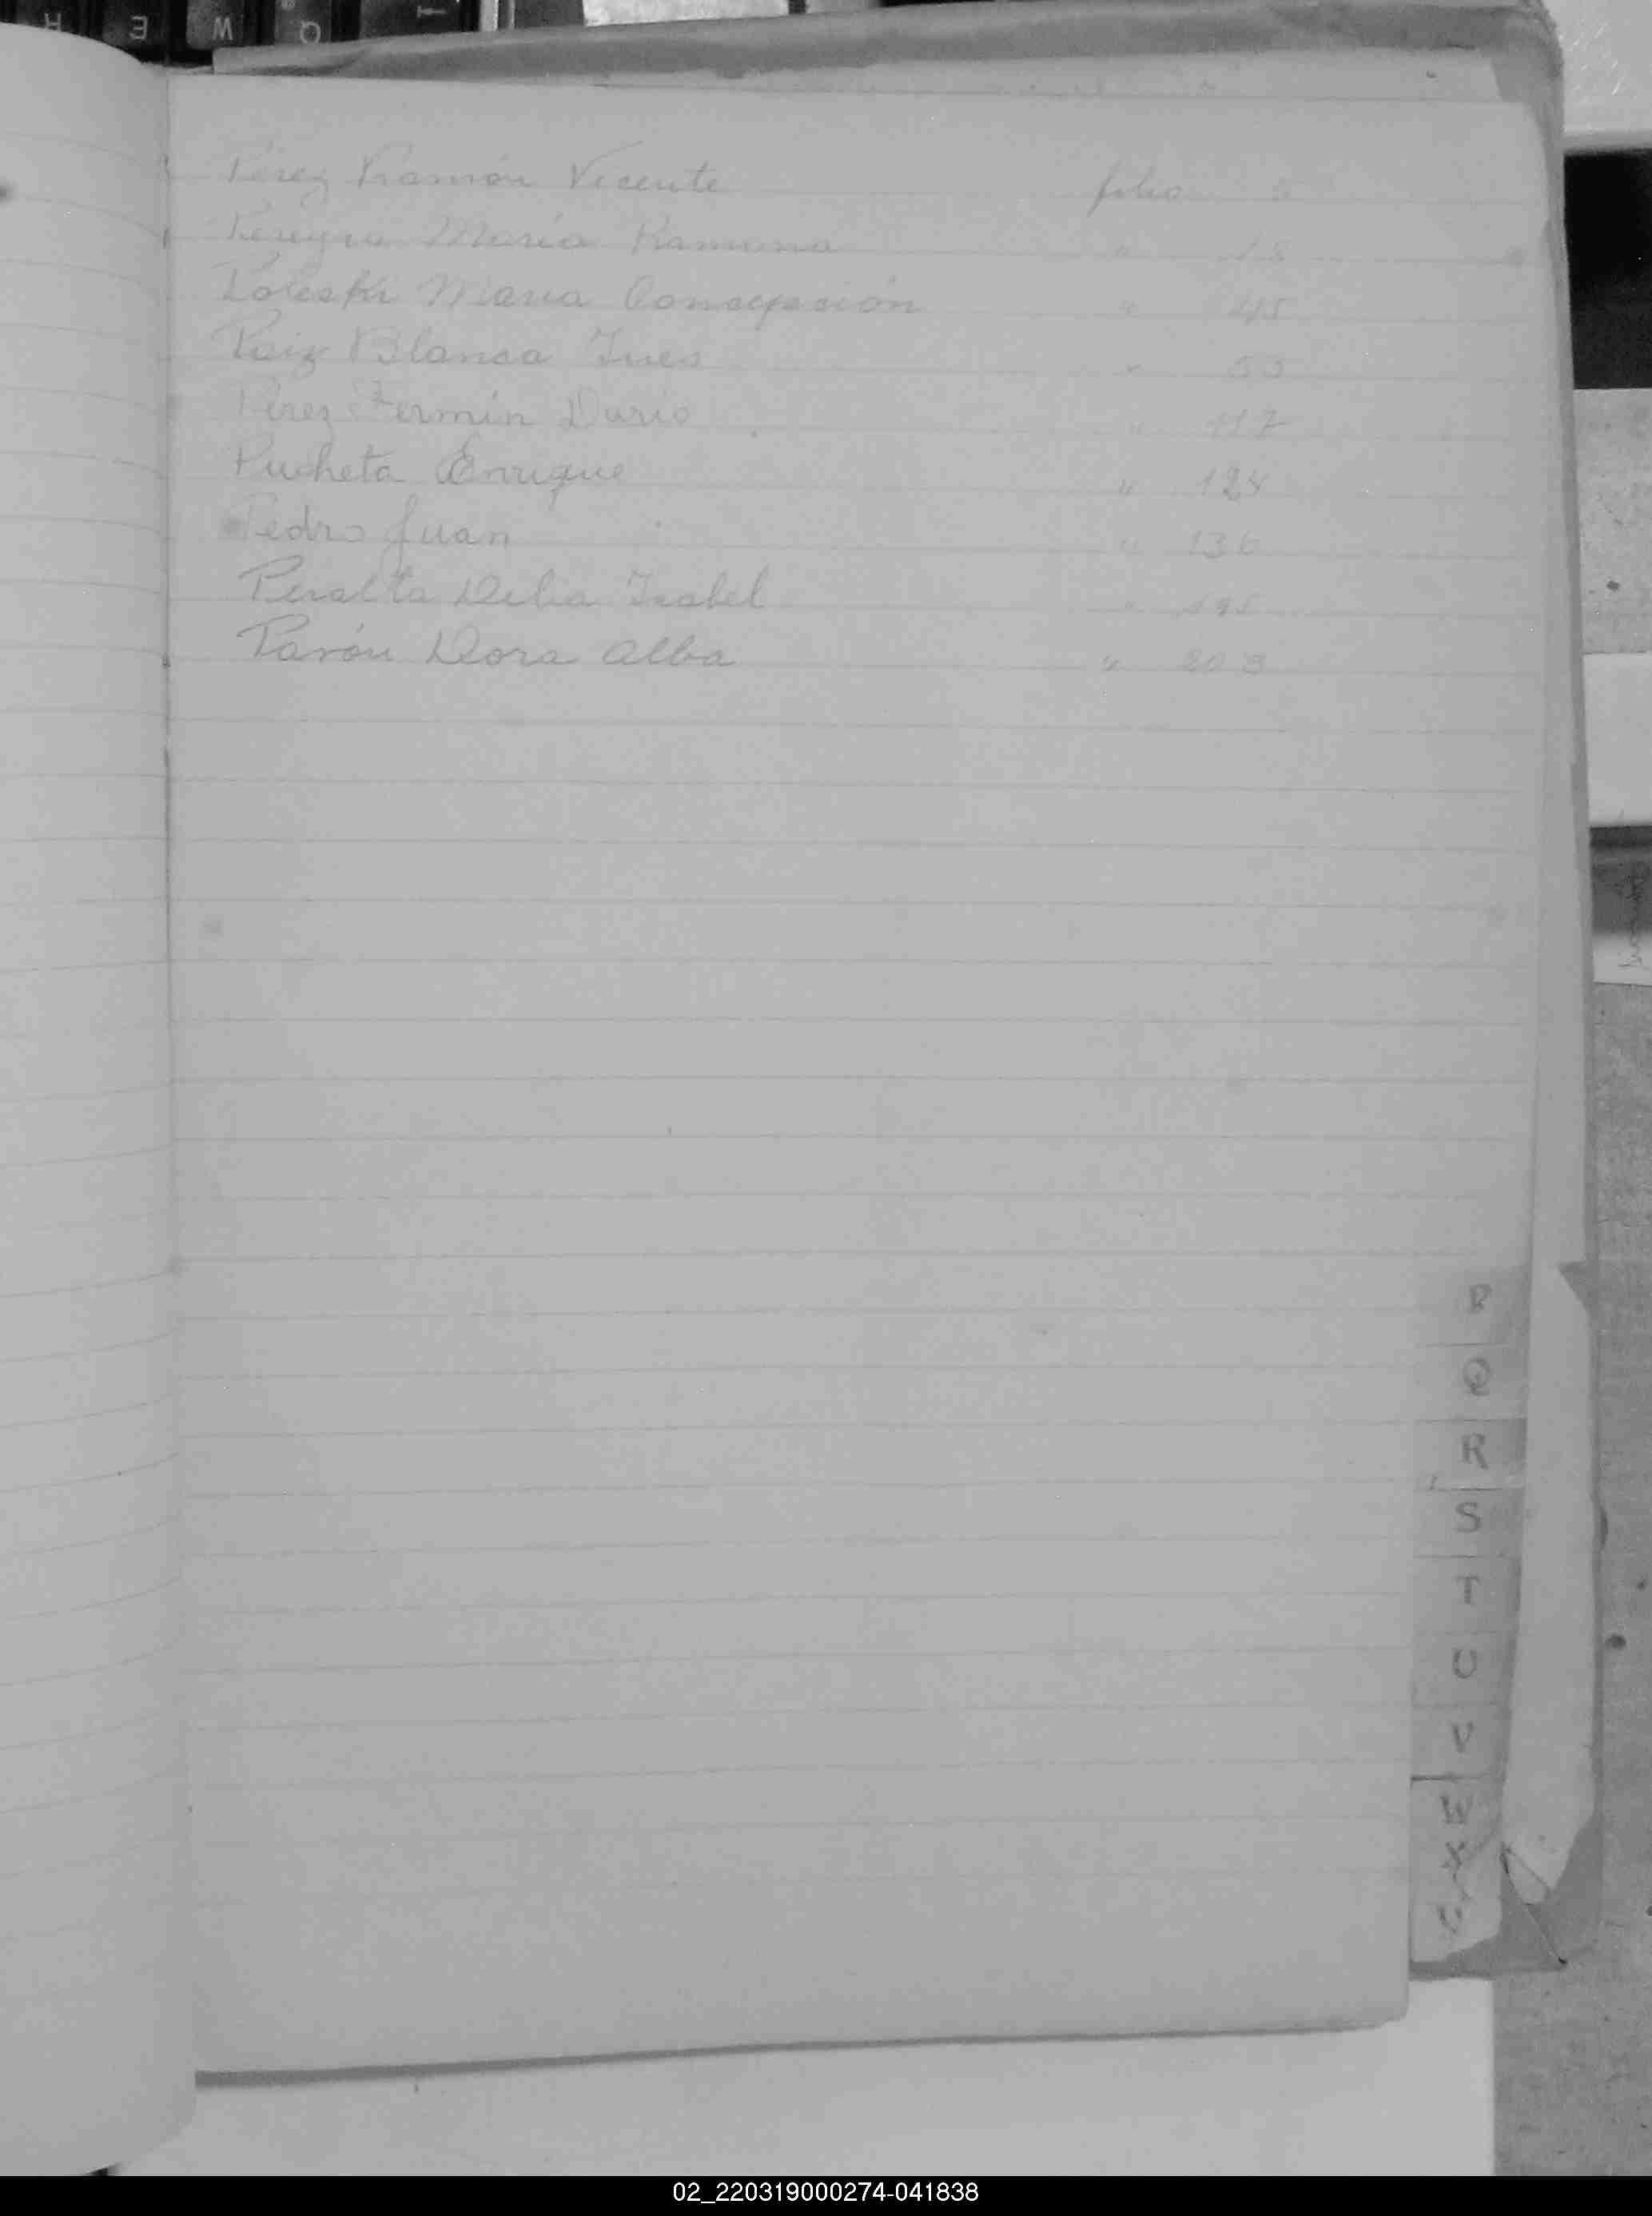 Pérez Ramón Vicente folio
Pereyra María Ramona " 18
Poleski María Concepción " 45
Roiz Blanca Ines " 53
Pérez Fermín Durio " 117
Pucheta Enrique " 124
Pedro Juan " 136
Peralta Delia Isabel " 195
Pavón Dora Alba " 203
P
Q
R
S
T
U
V
W
X
02_220319000274-041838